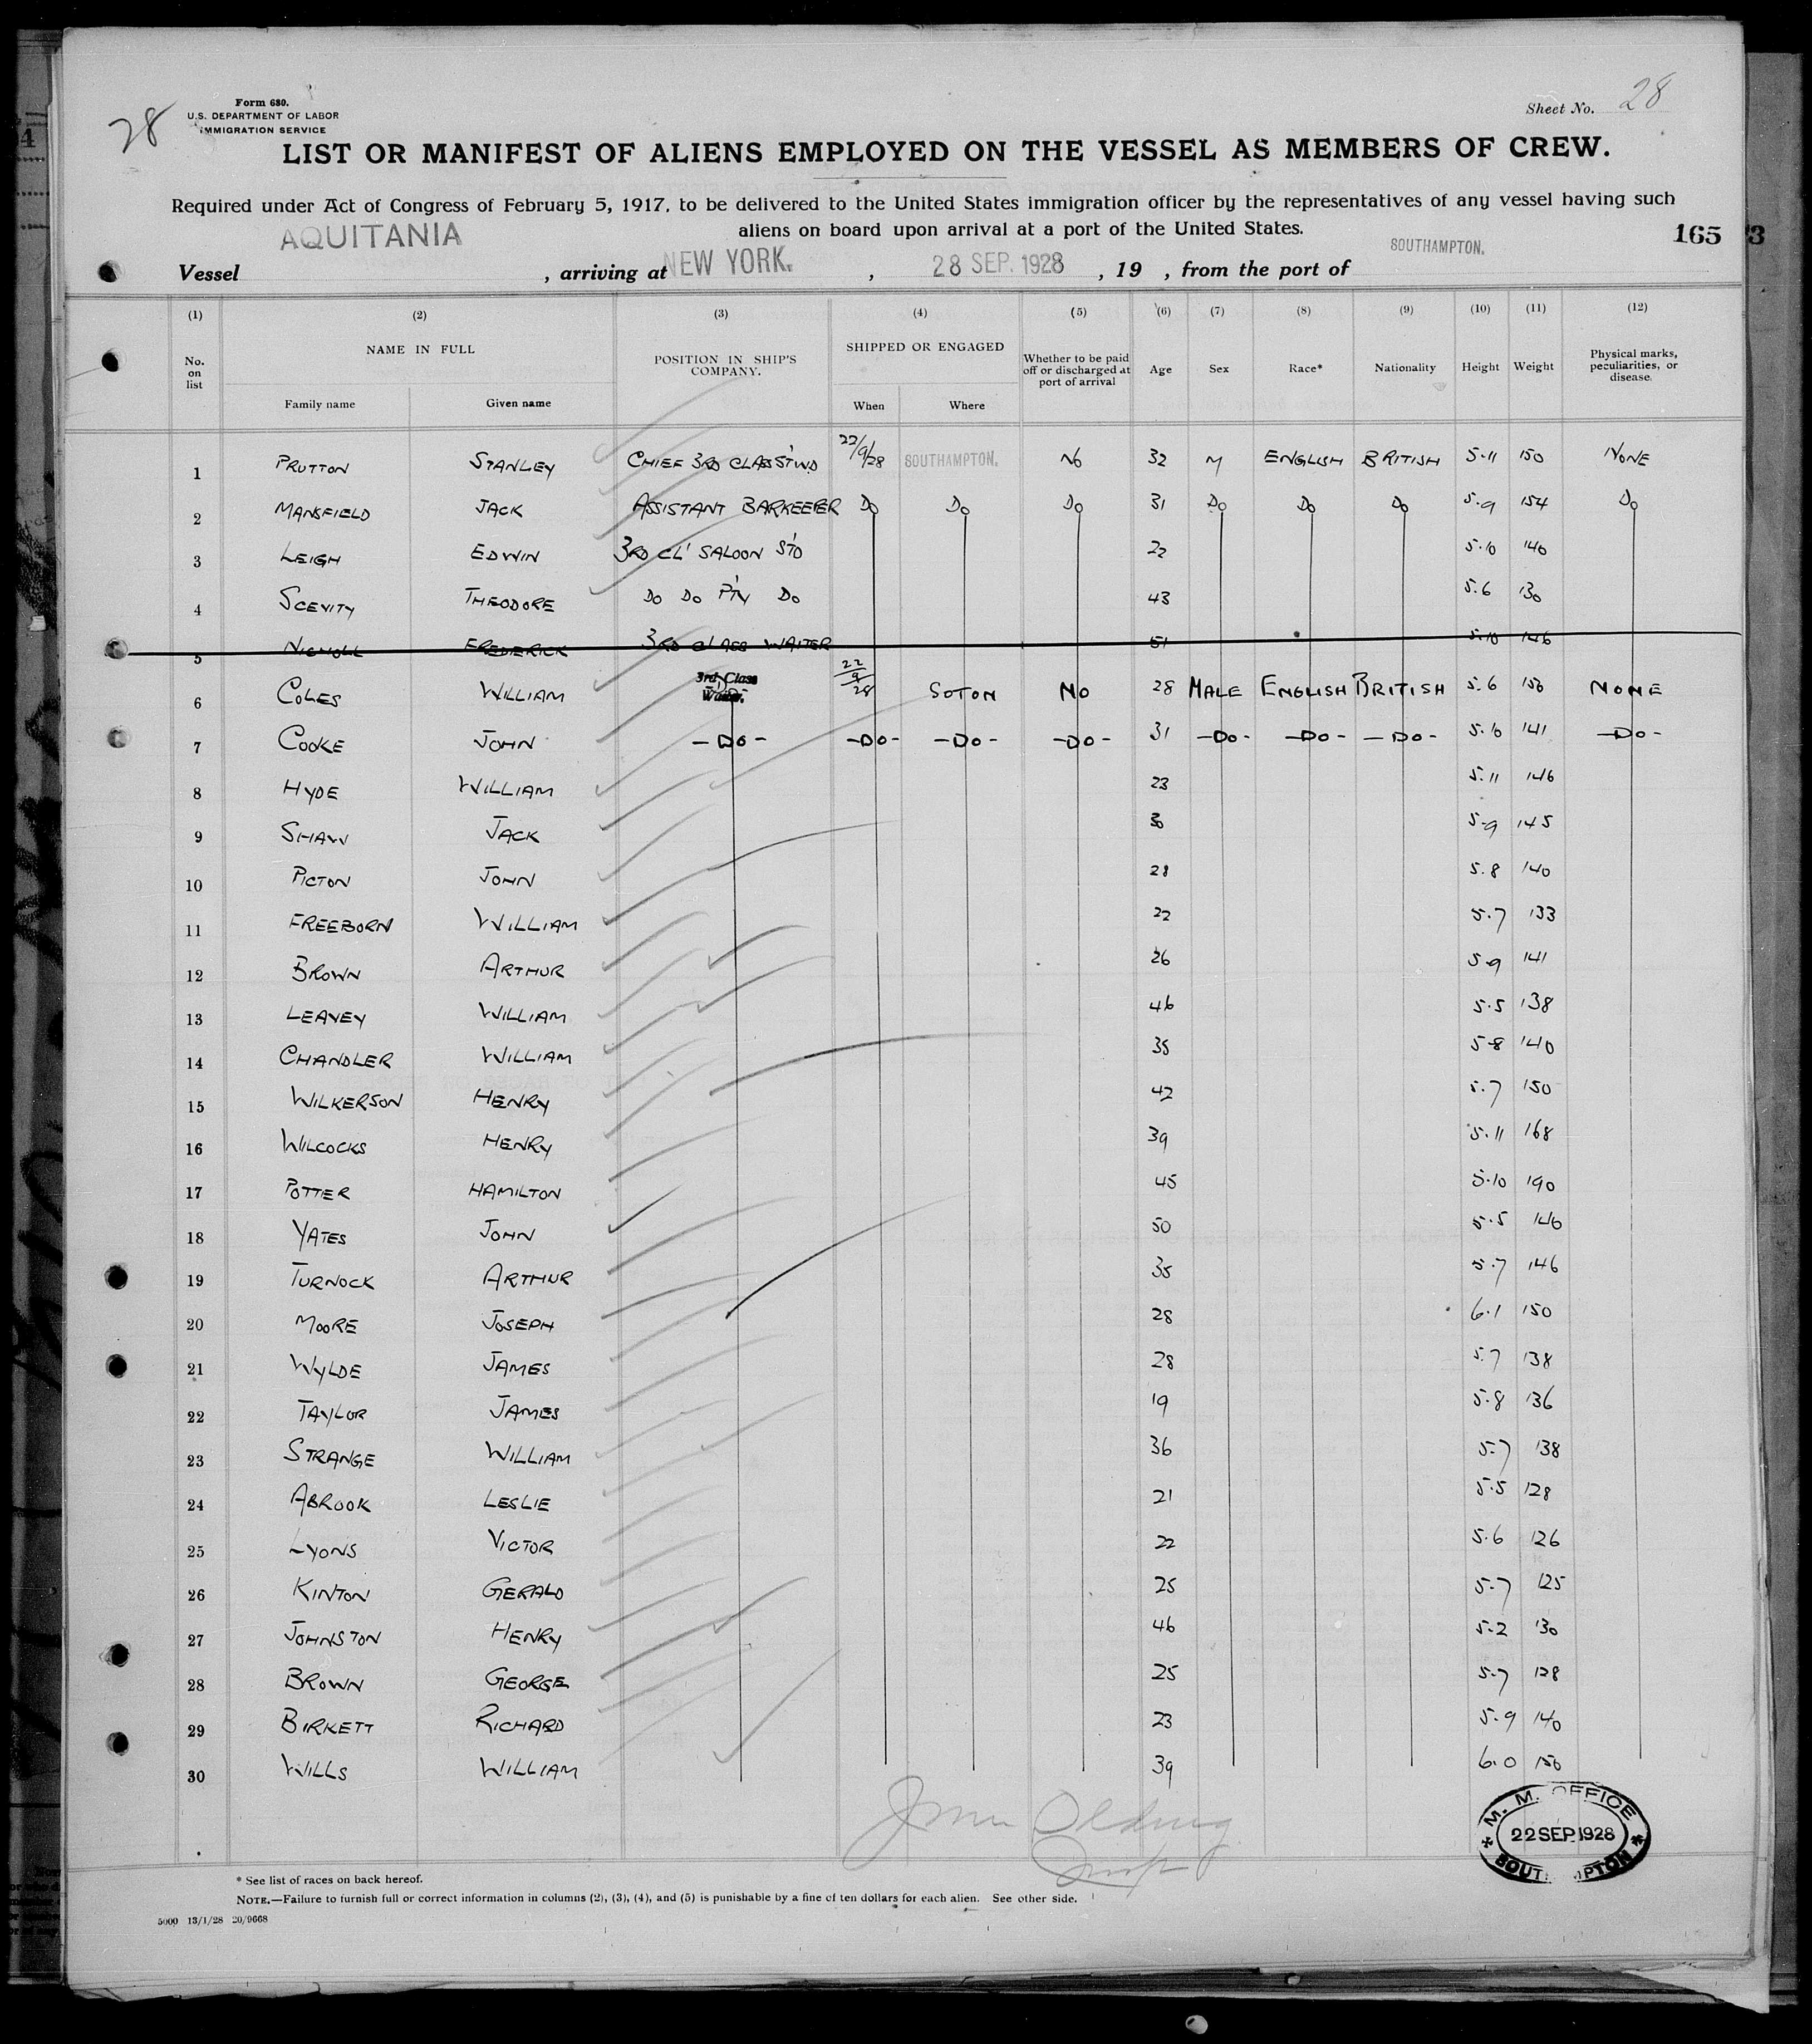 28
Form 680.
U.S. DEPARTMENT OF LABOR
IMMIGRATION SERVICE
Sheet No. 28
LIST OR MANIFEST OF ALIENS EMPLOYED ON THE VESSEL AS MEMBERS OF CREW.
Required under Act of Congress of February 5, 1917, to be delivered to the United States immigration officer by the representatives of any vessel having such
aliens on board upon arrival at a port of the United States.
165
Vessel AQUITANIA, arriving at NEW YORK., 28 SEP. 1928, 19 , from the port of SOUTHAMPTON.
(1) (2) (3) (4) (5) (6) (7) (8) (9) (10) (11) (12)
No. on list NAME IN FULL POSITION IN SHIP'S COMPANY. SHIPPED OR ENGAGED Whether to be paid off or discharged at port of arrival Age Sex Race* Nationality Height Weight Physical marks, peculiarities, or disease.
Family name Given name When Where
1 PRUTTON STANLEY CHIEF 3RD CLASS ST'WD 22/9/28 SOUTHAMPTON. NO 32 M ENGLISH BRITISH 5.11 150 NONE
2 MANSFIELD JACK ASSISTANT BARKEEPER DO DO DO 31 DO DO DO 5.9 154 DO
3 LEIGH EDWIN 3RD CL' SALOON ST'D 22 5.10 140
4 SCEVITY THEODORE DO DO P'TY DO 43 5.6 130
5 NICHOLL FREDERICK 3RD CLASS WAITER 51 5.10 146
6 COLES WILLIAM 3rd. Class Waiter. 22/9/28 SOTON NO 28 MALE ENGLISH BRITISH 5.6 150 NONE
7 COOKE JOHN -DO- -DO- -DO- -DO- 31 -DO- -DO- -DO- 5.10 141 -DO-
8 HYDE WILLIAM 23 5.11 146
9 SHAW JACK 30 5.9 145
10 PICTON JOHN 28 5.8 140
11 FREEBORN WILLIAM 22 5.7 133
12 BROWN ARTHUR 26 5.9 141
13 LEAVEY WILLIAM 46 5.5 138
14 CHANDLER WILLIAM 35 5.8 140
15 WILKERSON HENRY 42 5.7 150
16 WILCOCKS HENRY 39 5.11 168
17 POTTER HAMILTON 45 5.10 190
18 YATES JOHN 50 5.5 146
19 TURNOCK ARTHUR 35 5.7 146
20 MOORE JOSEPH 28 6.1 150
21 WYLDE JAMES 28 5.7 138
22 TAYLOR JAMES 19 5.8 136
23 STRANGE WILLIAM 36 5.7 138
24 ABROOK LESLIE 21 5.5 128
25 LYONS VICTOR 22 5.6 126
26 KINTON GERALD 25 5.7 125
27 JOHNSTON HENRY 46 5.2 130
28 BROWN GEORGE 25 5.7 128
29 BIRKETT RICHARD 23 5.9 140
30 WILLS WILLIAM 39 6.0 150
M. M. OFFICE
22 SEP 1928
* See list of races on back hereof.
NOTE.—Failure to furnish full or correct information in columns (2), (3), (4), and (5) is punishable by a fine of ten dollars for each alien. See other side.
5000 13/1/28 20/9668